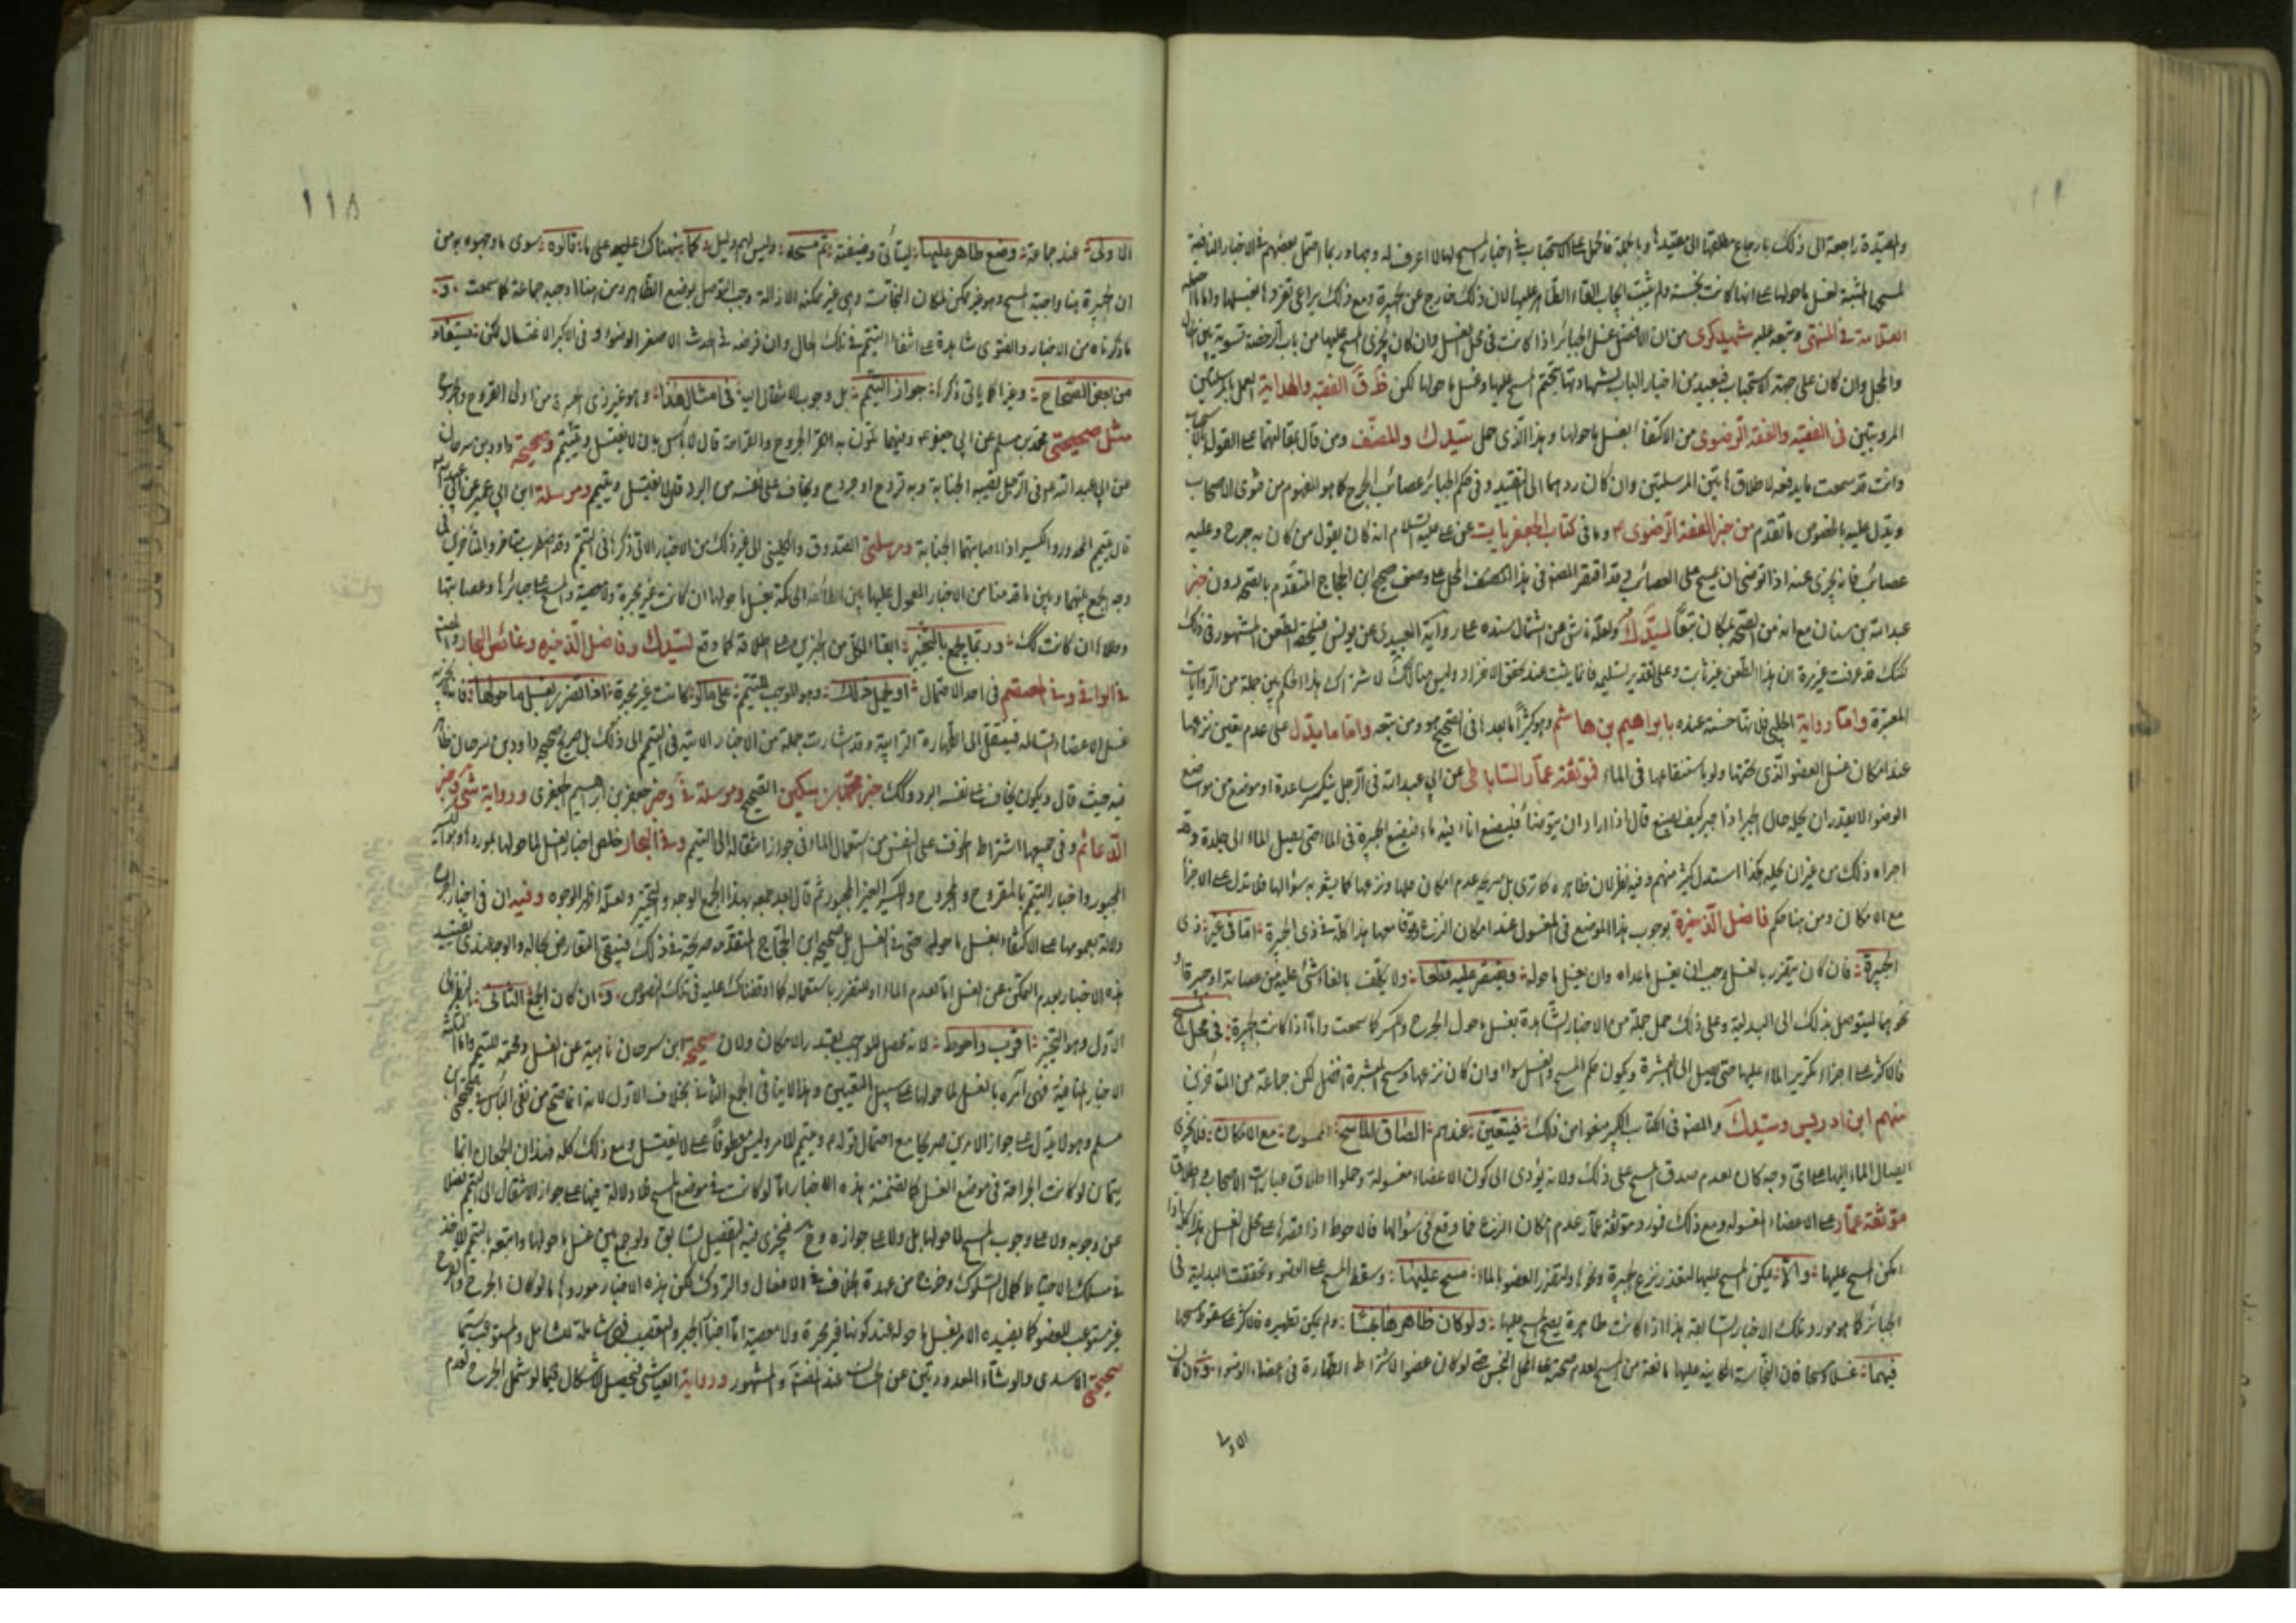 والمقيدة راجعة الى ذلك بارجاع مطلقها الى مقيدها وبالجملة فالحمل على الاستحباب في اخبار المسح لها لا اعرف له وجها وربما احتمل بعضهم في الاخبار النافية
لمسحها المثبتة لغسل ما حولها على انها كانت نجسة ولم يثبت ايجاب القاء الطاهر عليها لان ذلك خارج عن الجبيرة ومع ذلك يراعى تعزرها بغسلها واما ما
العلامة في المنتهى وتبعه عليه شهيد كرى من ان الافضل غسل الجبائر اذا كانت في محل الغسل وان كان يجزى المسح عليها من باب الرخصة تسوية بين
والمحل وان كان على جهة الاستحباب فبعيد من اخبار الباب لشهادتها بتحتم المسح عليها وغسل ما حولها لكن الفقيه والهداية العمل بالمرسلتين
المرويتين في الفقيه والفقه الرضوى من الاكتفاء بغسل ما حولها وهذا الذى حمل سيدك والمصنف ومن قال بمقالتهما على القول
وانت قد سمعت ما يدفعه لاطلاق هاتين المرسلتين وان كان ردهما الى التقييد وفي حكم الجبائر عصائب الجرح كما هو المفهوم من فتوى الاصحاب
ويدل عليه بالخصوص ما تقدم من خبر الفقه الرضوى وما في كتاب الجعفريات عن على عليه السلام انه كان يقول من كان به جرح وعليه
عصائب فانه يجزى عنه اذا توضى ان يمسح على العصائب وقد اقتصر المصنف في هذا المحل على وصف صحيح ابن الحجاج المتقدم بالصحة دون خبر
عبد الله بن سنان مع انه من الصحة بمكان تبعا لسيدك ولعله ناش عن اشتمال سنده على رواية العبيدى عن يونس فيلحقه الطعن المشهور في ذلك
لكنك قد عرفت غير مرة ان هذا الطعن غير ثابت وعلى تقدير تسليمه فانما يثبت عند تحقق الانفراد وليس هنا كك لاشتراك هذا الحكم بين جملة من الروايات
المعتبرة واما رواية الحلبي فلانها حسنة عنده بابراهيم بن هاشم وهو كثيرا ما يعدها في الصحيح هو ومن تبعه واما ما يدل على عدم تعين نزعها
عند امكان غسل العضو الذى تحتها ولو باستنقاعها في الماء فموثقة عمار الساباطي عن ابي عبد الله في الرجل ينكسر ساعده او موضع من مواضع
الوضوء فلا يقدر ان يحله لحال الجبر اذا جبر كيف يصنع قال اذا اراد ان يتوضأ فليضع اناء فيه ماء فيضع الجبيرة في الماء حتى يصل الماء الى جلده وقد
اجزاه ذلك من غير ان يحله هكذا استدل كثير منهم وفيه نظر لان ظاهره كما ترى بل صريحه عدم امكان حلها ونزعها كما يشعر به سؤالها فلا تدل على الاجزاء
مع الامكان ومن هنا حكم فاضل الذخيرة بوجوب هذا الموضع في المغسول عند امكان النزع هذا كله في ذى الجبيرة اما في غير ذى
الجبيرة فان كان يتضرر بالغسل وجب ان يغسل ما عداه وان يغسل ما حوله ويقتصر عليه قطعا ولا يكلف بالقاء شيء عليه من عصابة او جبيرة او
نحوهما ليتوصل بذلك الى البدلية وعلى ذلك حمل جملة من الاخبار الشاهدة بغسل ما حول الجرح والكسر كما سمعت واما اذا كانت الجبيرة في محل المسح
فالاكثر على اجزاء تكرير الماء عليها حتى يصل الى البشرة ويكون حكم المسح والغسل سواء وان كان نزعها ومسح البشرة افضل لكن جماعة من المتأخرين
منهم ابن ادريس وسيدك والمصنف في الكتاب الكبير منعوا من ذلك فيتعين عندهم الصاق الماسح الممسوح مع الامكان فلا يجزى
ايصال الماء اليها على اى وجه كان لعدم صدق المسح على ذلك ولانه يؤدى الى كون الاعضاء مغسولة وحملوا اطلاق عبارات الاصحاب واطلاق
موثقة عمار على الاعضاء المغسولة ومع ذلك فمورد موثقة عمار عدم امكان النزع فيما وقع في سؤالها فالاحوط اذا قصرها على محل الغسل هذا كله اذا
امكن المسح عليها والا يمكن المسح عليها لتعذر نزع الجبيرة ونحوها ولتضرر العضو بالماء مسح عليها وسقط المسح على العضو وتحققت البدلية في
الجبائر كما هو مورد تلك الاخبار السابقة هذا اذا كانت طاهرة يصح المسح عليها ولو كان ظاهرها نجسا ولم يمكن تطهيره فالاكثر على سقوط مسحها
فيهما غسلا ومسحا فان النجاسة الكاينة عليها مانعة من المسح لعدم صحته على المحل النجس حتى لو كان عضوا لاشتراط الطهارة في اعضاء الوضوء فان كان
الاولى
١١٨
الاولى عند جماعة وضع طاهر عليها ليتأتى وضيفته ثم مسحه وليس لهم دليل كما نبهناك عليه على ما قالوه سوى ما وجهوه به من
ان الجبيرة هنا واجبة المسح وهو غير ممكن لمكان النجاسة وهي غير ممكنة الازالة وجب التوصل بوضع الطاهر ومن هنا اوجبه جماعة كما سمعت و
ما ذكرناه من الاخبار والفتوى شاهدة على انتفاء التيمم في تلك الحال وان فرضه في الحدث الاصغر الوضوء وفي الاكبر الاغتسال لكن يستفاد
من بعض الصحاح وغيرها كما ياتى ذكرها جواز التيمم بل وجوب الانتقال اليه في امثال هذا وهو غير ذى الجبيرة من اولى القروح والجروح
مثل صحيحتي محمد بن مسلم عن ابي جعفر ع وفيهما تكون به القرح والجراحة قال لا بأس بان لا يغتسل ويتيمم وصحيحة داود بن سرحان
عن ابي عبد الله ع في الرجل تصيبه الجنابة وبه قروح او جروح ويخاف على نفسه من البرد قال لا يغتسل ويتيمم ومرسلة ابن ابي عمير عن ابي عبد الله
قال يتيمم المجدور والكسير اذا اصابتهما الجنابة ومرسلتي الصدوق والكليني الى غير ذلك من الاخبار الآتي ذكرها في التيمم وقد اضطرب متأخروا المتأخرين في
وجه الجمع بينهما وبين ما قدمنا من الاخبار المعمول عليها بين الطائفة الحاكمة بغسل ما حولها ان كانت غير مجبرة ولا معصبة والمسح على جبائرها وعصابتها
وطلاءها ان كانت كك وربما يجمع بالتخيير ابقاء لكل من الخبرين على اطلاقه كما وقع لسيدك وفاضل الذخيره وغائص البحار والمصنف
في الوافى وفى المعتصم في احد الاحتمال او يحمل ذلك وهو الموجب للتيمم على ما اذا كانت غير مجبرة اذا تضرر بغسل ما حولها فانه لا يجزيه
غسل الاعضاء السالمة فينتقل الى الطهارة الترابية وقد اشارت جملة من الاخبار الاتية في التيمم الى ذلك بل صريح صحيح داود بن سرحان
فيه حيث قال ويكون يخاف على نفسه البرد وكك خبر محمد بن سكين الصحيح ومرسلة وخبر جعفر بن ابراهيم الجعفرى ورواية وخبر
الدعائم وفي جميعها اشتراط الخوف على النفس من استعمال الماء في جواز انتقاله الى التيمم وفي البحار خص اخبار الغسل لما حولها بموردها وهو الكسير
المجبور واخبار التيمم بالمقروح والمجروح والكسير الغير المجبور ثم قال بعد جمعه بهذا الجمع الوجه والتخيير ولعله اظهر الوجوه وفيه ان في اخبار الجروح
دلالة بعمومها على الاكتفاء بغسل ما حولها حتى في الغسل بل صحيحة ابن الحجاج المتقدمة صريحة في ذلك فيبقى التعارض بحاله والاوجه عندى تقييد
هذه الاخبار بعدم التمكن من الغسل اما لعدم الماء او لتضرر باستعماله كما اوقفناك عليه في تلك النصوص و ان كان الجمع الثاني
الاول وهو التخيير اقرب واحوط لانه محصل للواجب بقدر الامكان ولان صحيحة ابن سرحان ناهية عن الغسل ومحتمة للتيمم واما
الاخبار المنافية فهي آمره بالغسل لما حولها على سبيل التعيين وهذا لا ينافي الجمع الثاني بخلاف الاول لانه انما صح من نفى البأس في صحيحتي ابن
مسلم وهو لا يدل على جواز الامرين صريحا مع احتمال قوله ويتيمم للامر وليس معطوفا على لا يغتسل ومع ذلك كله فهذان الجمعان انما
يتمان لو كانت الجراحة في موضع الغسل كما تضمنته هذه الاخبار اما لو كانت في موضع المسح فلا دلالة فيها على جواز الانتقال الى التيمم فضلا
عن وجوبه ولا على وجوب المسح لما حولها بل ولا على جوازه وح فيجزى فيه التفصيل السابق ولو جمع بين غسل ما حولها واتبعه بالتيمم لاخذ
في مسلك الاحتياط كمال السلوك وخرج من عهدة الخلاف في الافعال والتروك لكن هذه الاخبار موردها ما لو كان الجرح والقرح
غير مستوعب للعضو كما يفيده الامر بغسل ما حوله عند كونها غير مجبرة ولا معصبة اما اخبار الجبر والتعصيب فهي شاملة للشامل والمستوعب سيما
صحيحتي الاسدى والوشاء المعدودتين من الحسان عند المصنف والمشهور ورواية العياشى فيحصل الاشكال فيما لو شمل الجرح لعدم